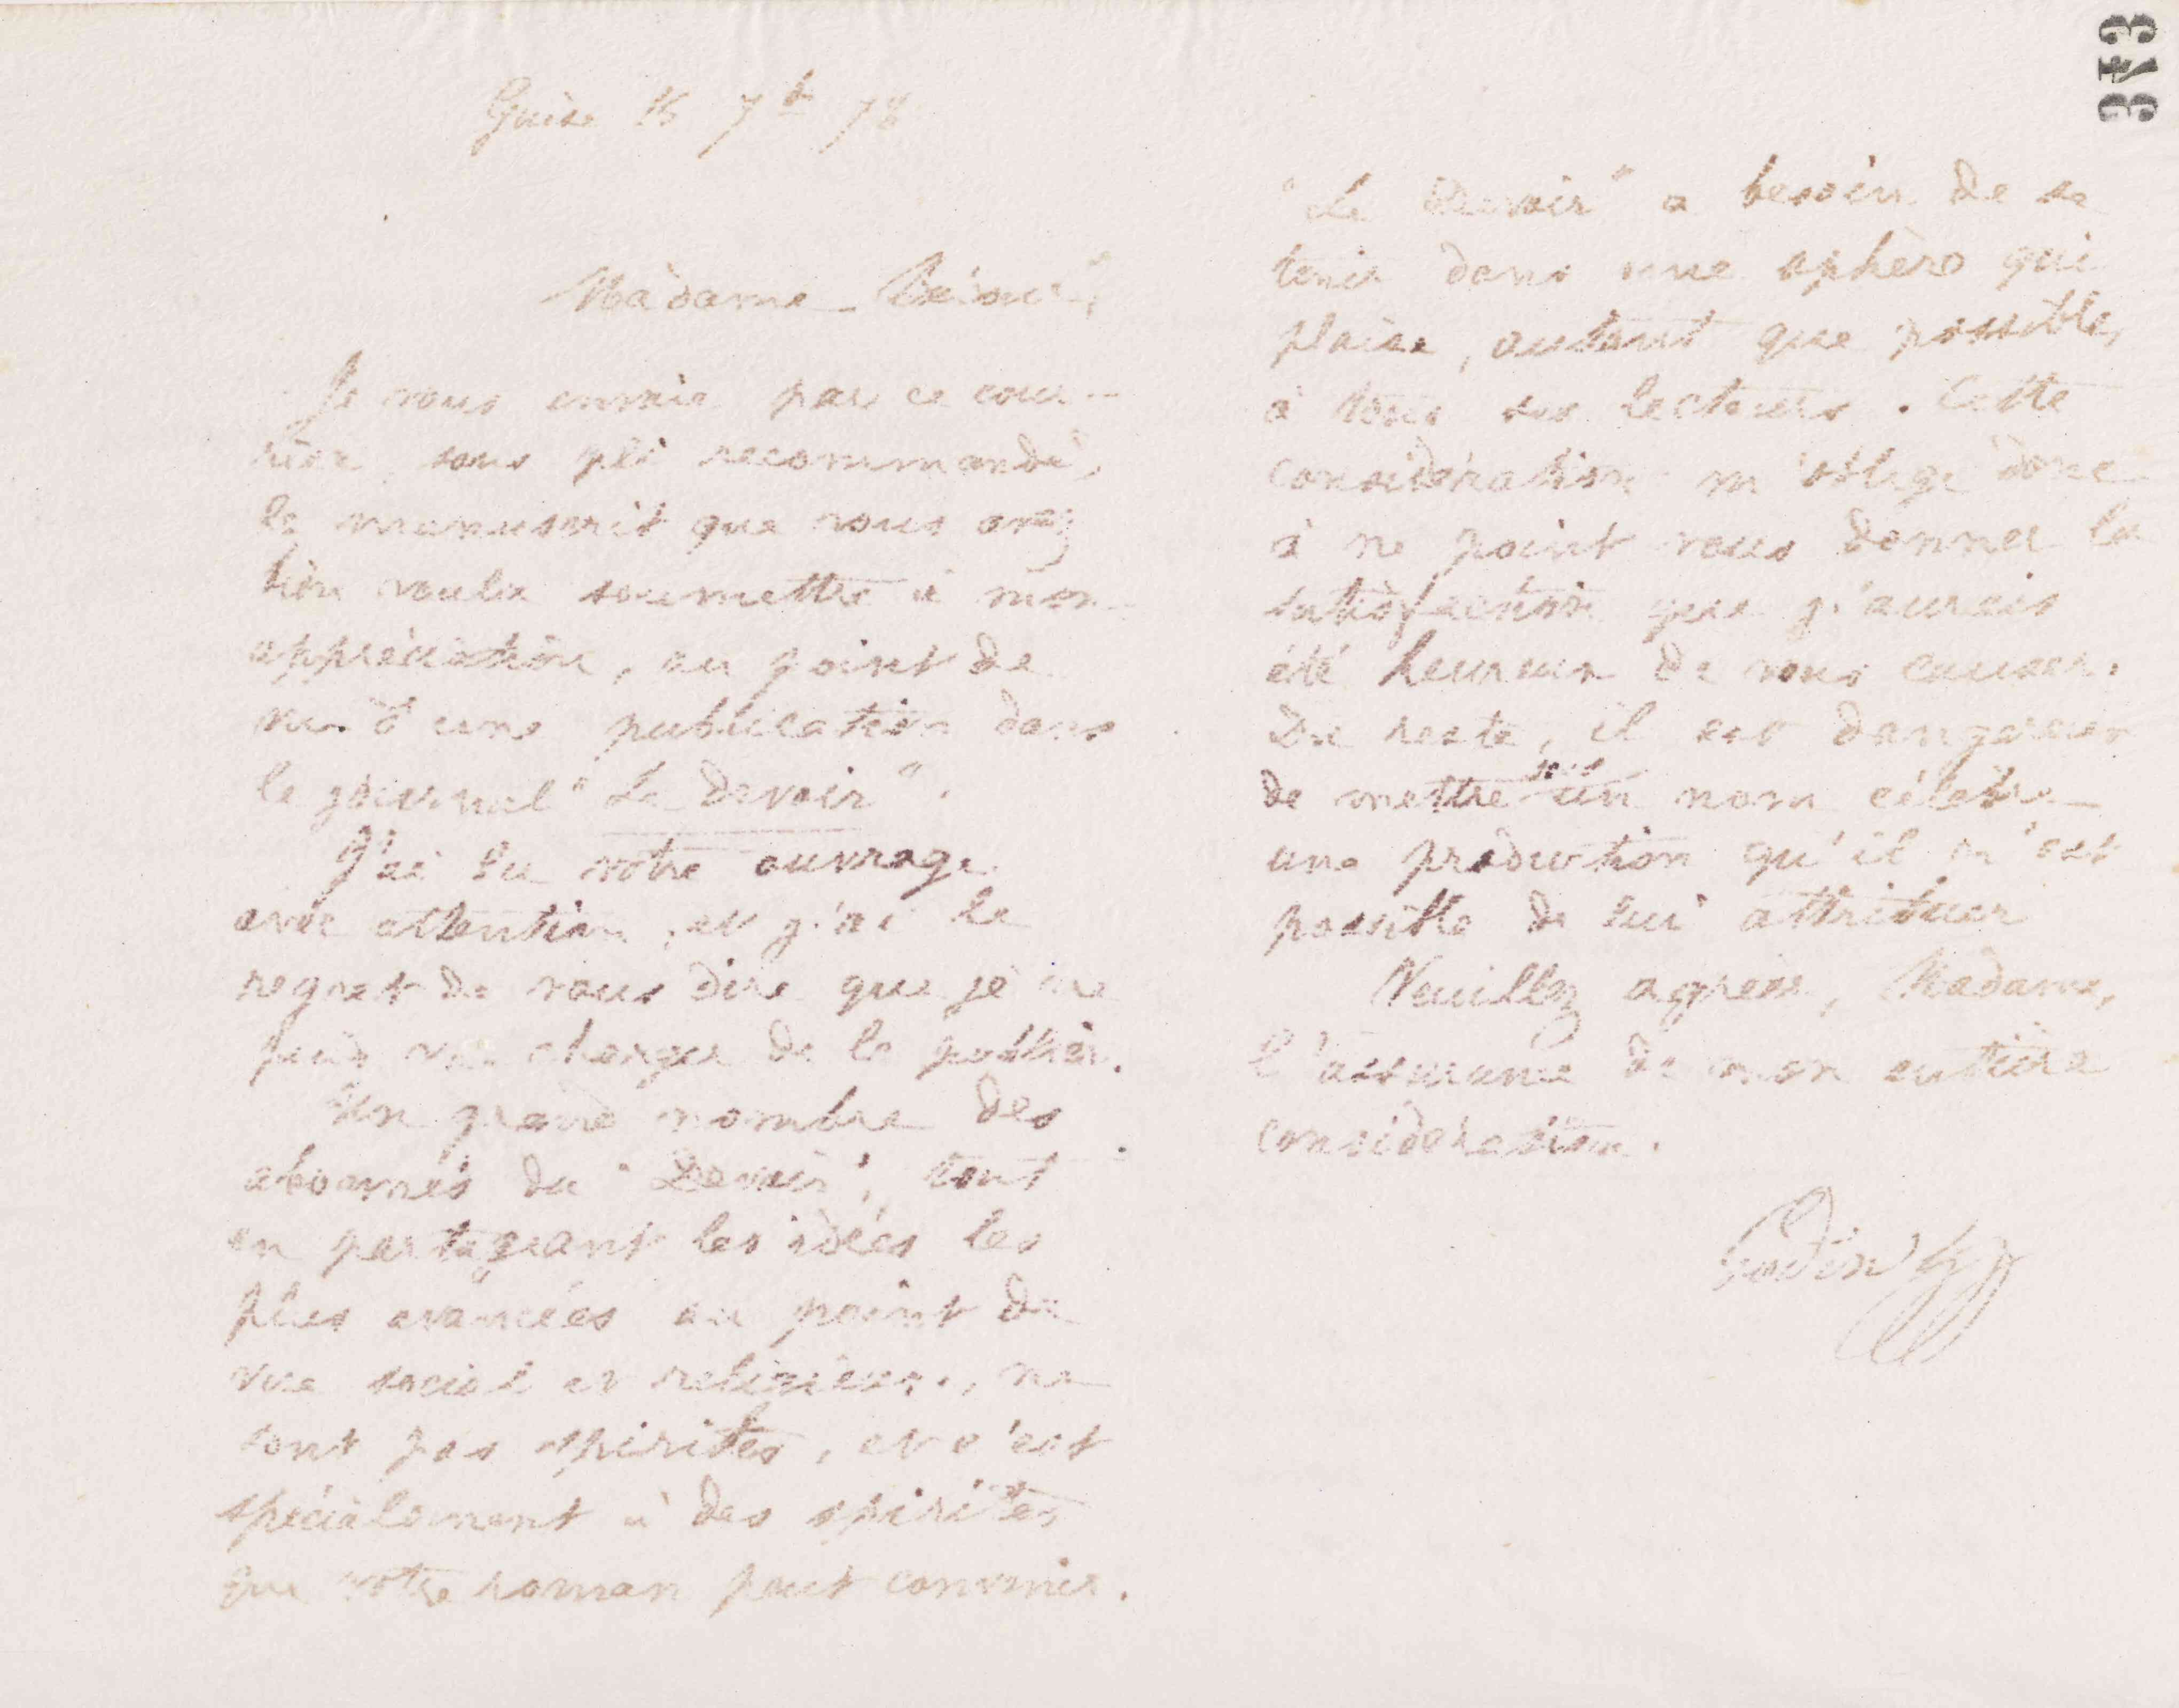 Guise 16 7b 78
Madame
Je vous envoie par ce cour-
rier, sous pli recommandé,
le manuscrit que vous avez
bien voulu soumettre à mon
appréciation, au point de
vue d'une publication dans
le journal "Le Devoir".
J'ai lu votre ouvrage
avec attention, et j'ai le
regret de vous dire que je ne
puis me charger de le publier.
Un grand nombre des
abonnés du "Devoir", tout
en partageant les idées les
plus avancées au point de
vue social et religieux, ne
sont pas spirites, et c'est
spécialement à des spirites
que votre roman peut convenir.
343
"Le Devoir" a besoin de se
tenir dans une sphère qui
plaise, autant que possible,
à tous ses lecteurs. Cette
considération m'oblige donc
à ne point vous donner la
satisfaction que j'aurais
été heureux de vous causer.
Du reste, il est dangereux
de mettre sous un nom célèbre
une production qu'il n'est
possible de lui attribuer
Veuillez agréer, Madame,
l'assurance de mon entière
considération.
Godin